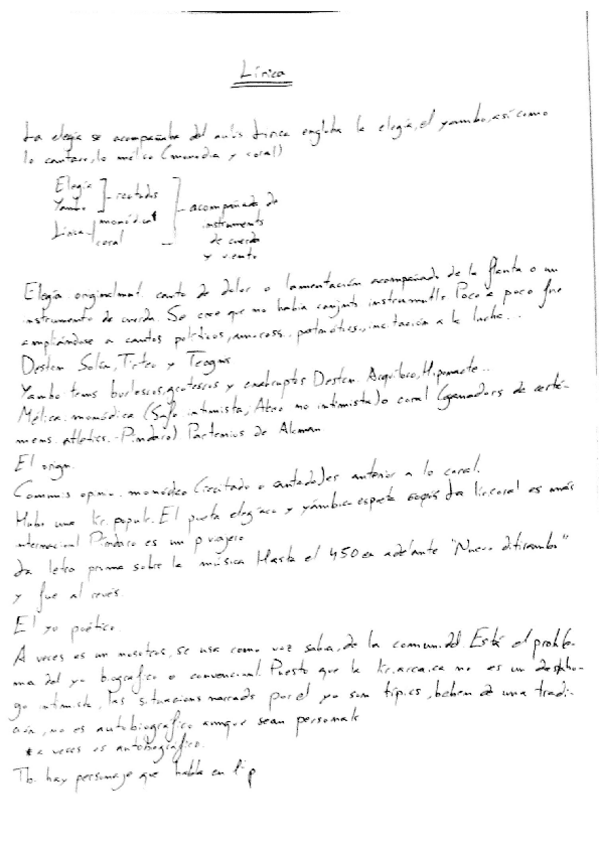 Lírica
La elegía se acompañaba del aulós Lírica engloba la elegía, el yambo, así como
lo cantado, lo mélico (monodia y coral)
Elegía
Yambo
recitados
Lírica
monódica
coral
acompañado de
instruments
de cuerda
y viento
Elegía originalmnt. canto de dolor o lamentación acompañado de la flauta o un
instrumento de cuerda. Se cree que no había conjunts instrumntls Poco a poco fue
ampliándose a cantos políticos, amoross, patrióticos, incitación a la lucha...
Destcn Solón, Tirteo y Teognis
Yambo tems burlescos, grotescos y exabruptos Destcn. Arquíloco, Hiponacte..
Mélica monódica (Safo intimista, Alceo no intimista) o coral (ganadors de certá-
mens atlétics.-Píndaro) Partenios de Alcman
El orign.
Commis opina. monódico (recitado o cantado) es anterior a lo coral.
Hubo una lír. populr. El poeta elegíaco y yámbico La lír. coral es más
internacional Píndaro es un p viajero
La letra prima sobre la música Hasta el 450 en adelante "Nuevo ditirambo"
y fue al revés.
El yo poético.
A veces es un nosotros, se usa como voz sabia, de la comunidd Está el proble-
ma del yo biográfico o convencional. Puesto que la lír. arcaica no es un desaho-
go intimista, las situacions narrads por el yo son típics, beben de una tradi-
ción, no es autobiográfico aunque sean personals
a veces es autobiográfico.
Tb. hay personaje que habla en 1ª p